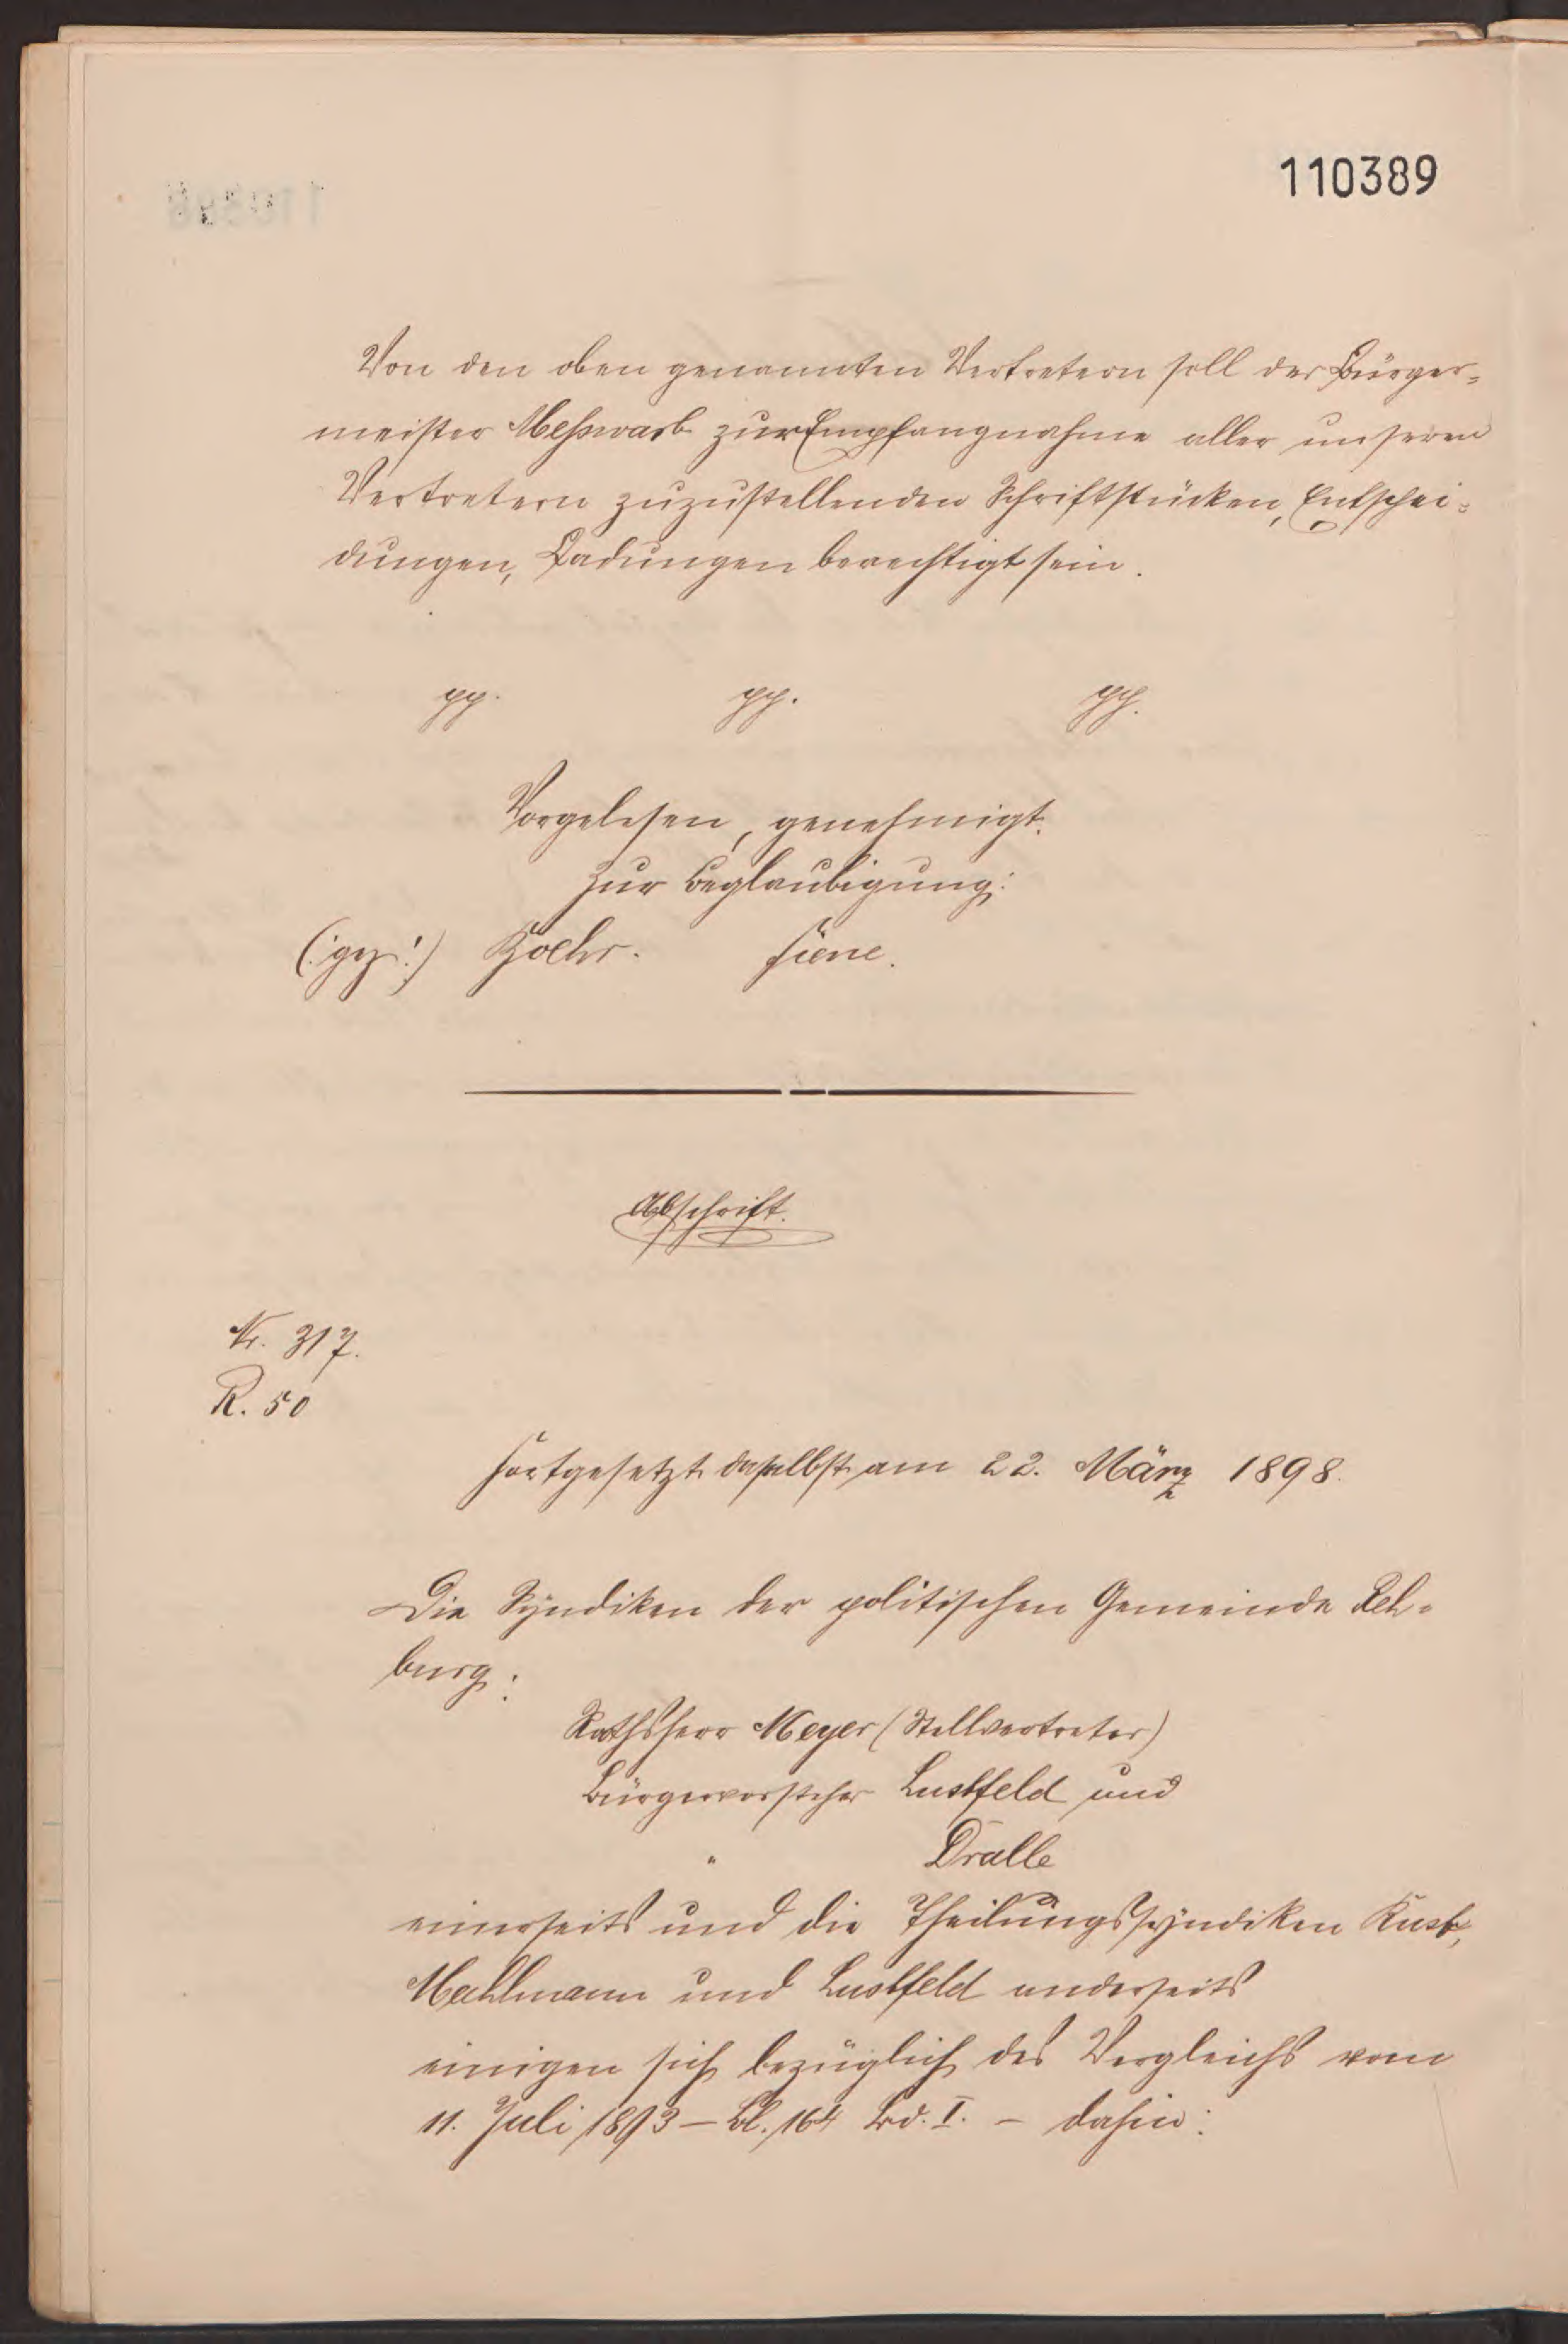 110389
Von den oben genannten Vertretern soll der Bürger-
meister Meßwarb zur Empfangnahme aller unseren
Vertretern zuzustellenden Schriftstücken, Entschei-
dungen, Ladungen berechtigt sein.
pp. pp. pp.
Vorgelesen, genehmigt.
Zur Beglaubigung:
(:gez:) Hoehr. Fiene.
Abschrift.
Nr. 317.
R. 50
Fortgesetzt daselbst am 22. März 1898.
Die Syndiken der politischen Gemeinde Reh-
burg:
Rathsherr Meyer (Stellvertreter)
Bürgervorsteher Lustfeld und
" Dralle
einerseits und die Theilungssyndiken Kust,
Mehlmann und Lustfeld anderseits
einigen sich bezüglich des Vergleichs vom
11. Juli 1893 – Bl. 164 Bd. I. – dahin: